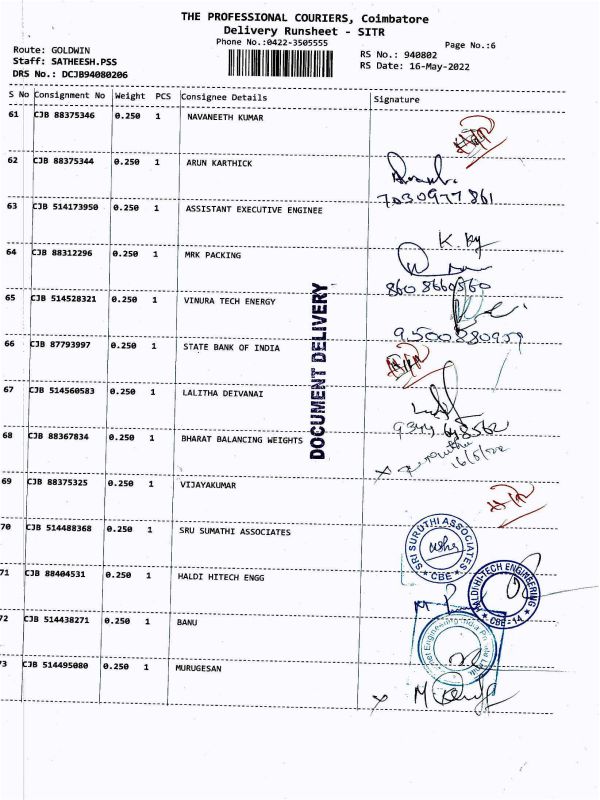 THE PROFESSIONAL COURIERS, Coimbatore
Delivery Runsheet - SITR
Phone No.:0422-3505555
Page No.:6
Route: GOLDWIN
RS No.: 940802
Staff: SATHEESH.PSS
RS Date: 16-May-2022
DRS No.: DCJB94080206
S No Consignment No Weight PCS Consignee Details Signature
61 CJB 88375346 0.250 1 NAVANEETH KUMAR
62 CJB 88375344 0.250 1 ARUN KARTHICK
7030977861
63 CJB 514173950 0.250 1 ASSISTANT EXECUTIVE ENGINEE
64 CJB 88312296 0.250 1 MRK PACKING
860 8660560
65 CJB 514528321 0.250 1 VINURA TECH ENERGY
9500880959
66 CJB 87793997 0.250 1 STATE BANK OF INDIA
67 CJB 514560583 0.250 1 LALITHA DEIVANAI
68 CJB 88367834 0.250 1 BHARAT BALANCING WEIGHTS
16/5/22
69 CJB 88375325 0.250 1 VIJAYAKUMAR
70 CJB 514488368 0.250 1 SRU SUMATHI ASSOCIATES
SRI SURUTHI ASSOCIATES
CBE
71 CJB 88404531 0.250 1 HALDI HITECH ENGG
HALDI HI-TECH ENGINEERING
CBE-14
72 CJB 514438271 0.250 1 BANU
73 CJB 514495080 0.250 1 MURUGESAN
DOCUMENT DELIVERY